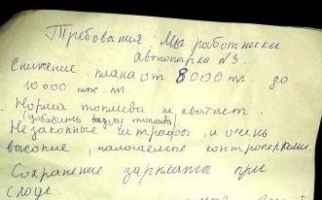 Требования Мы работники
автопарка №3.
Снижение плана от 8000 тнг. до
10000 тнг.
Норма топлива не хватает.
(добавить выдачу топлива)
Незаконные штрафы, и очень
высокие, налагаемые контролерами.
Сохранение зарплаты при